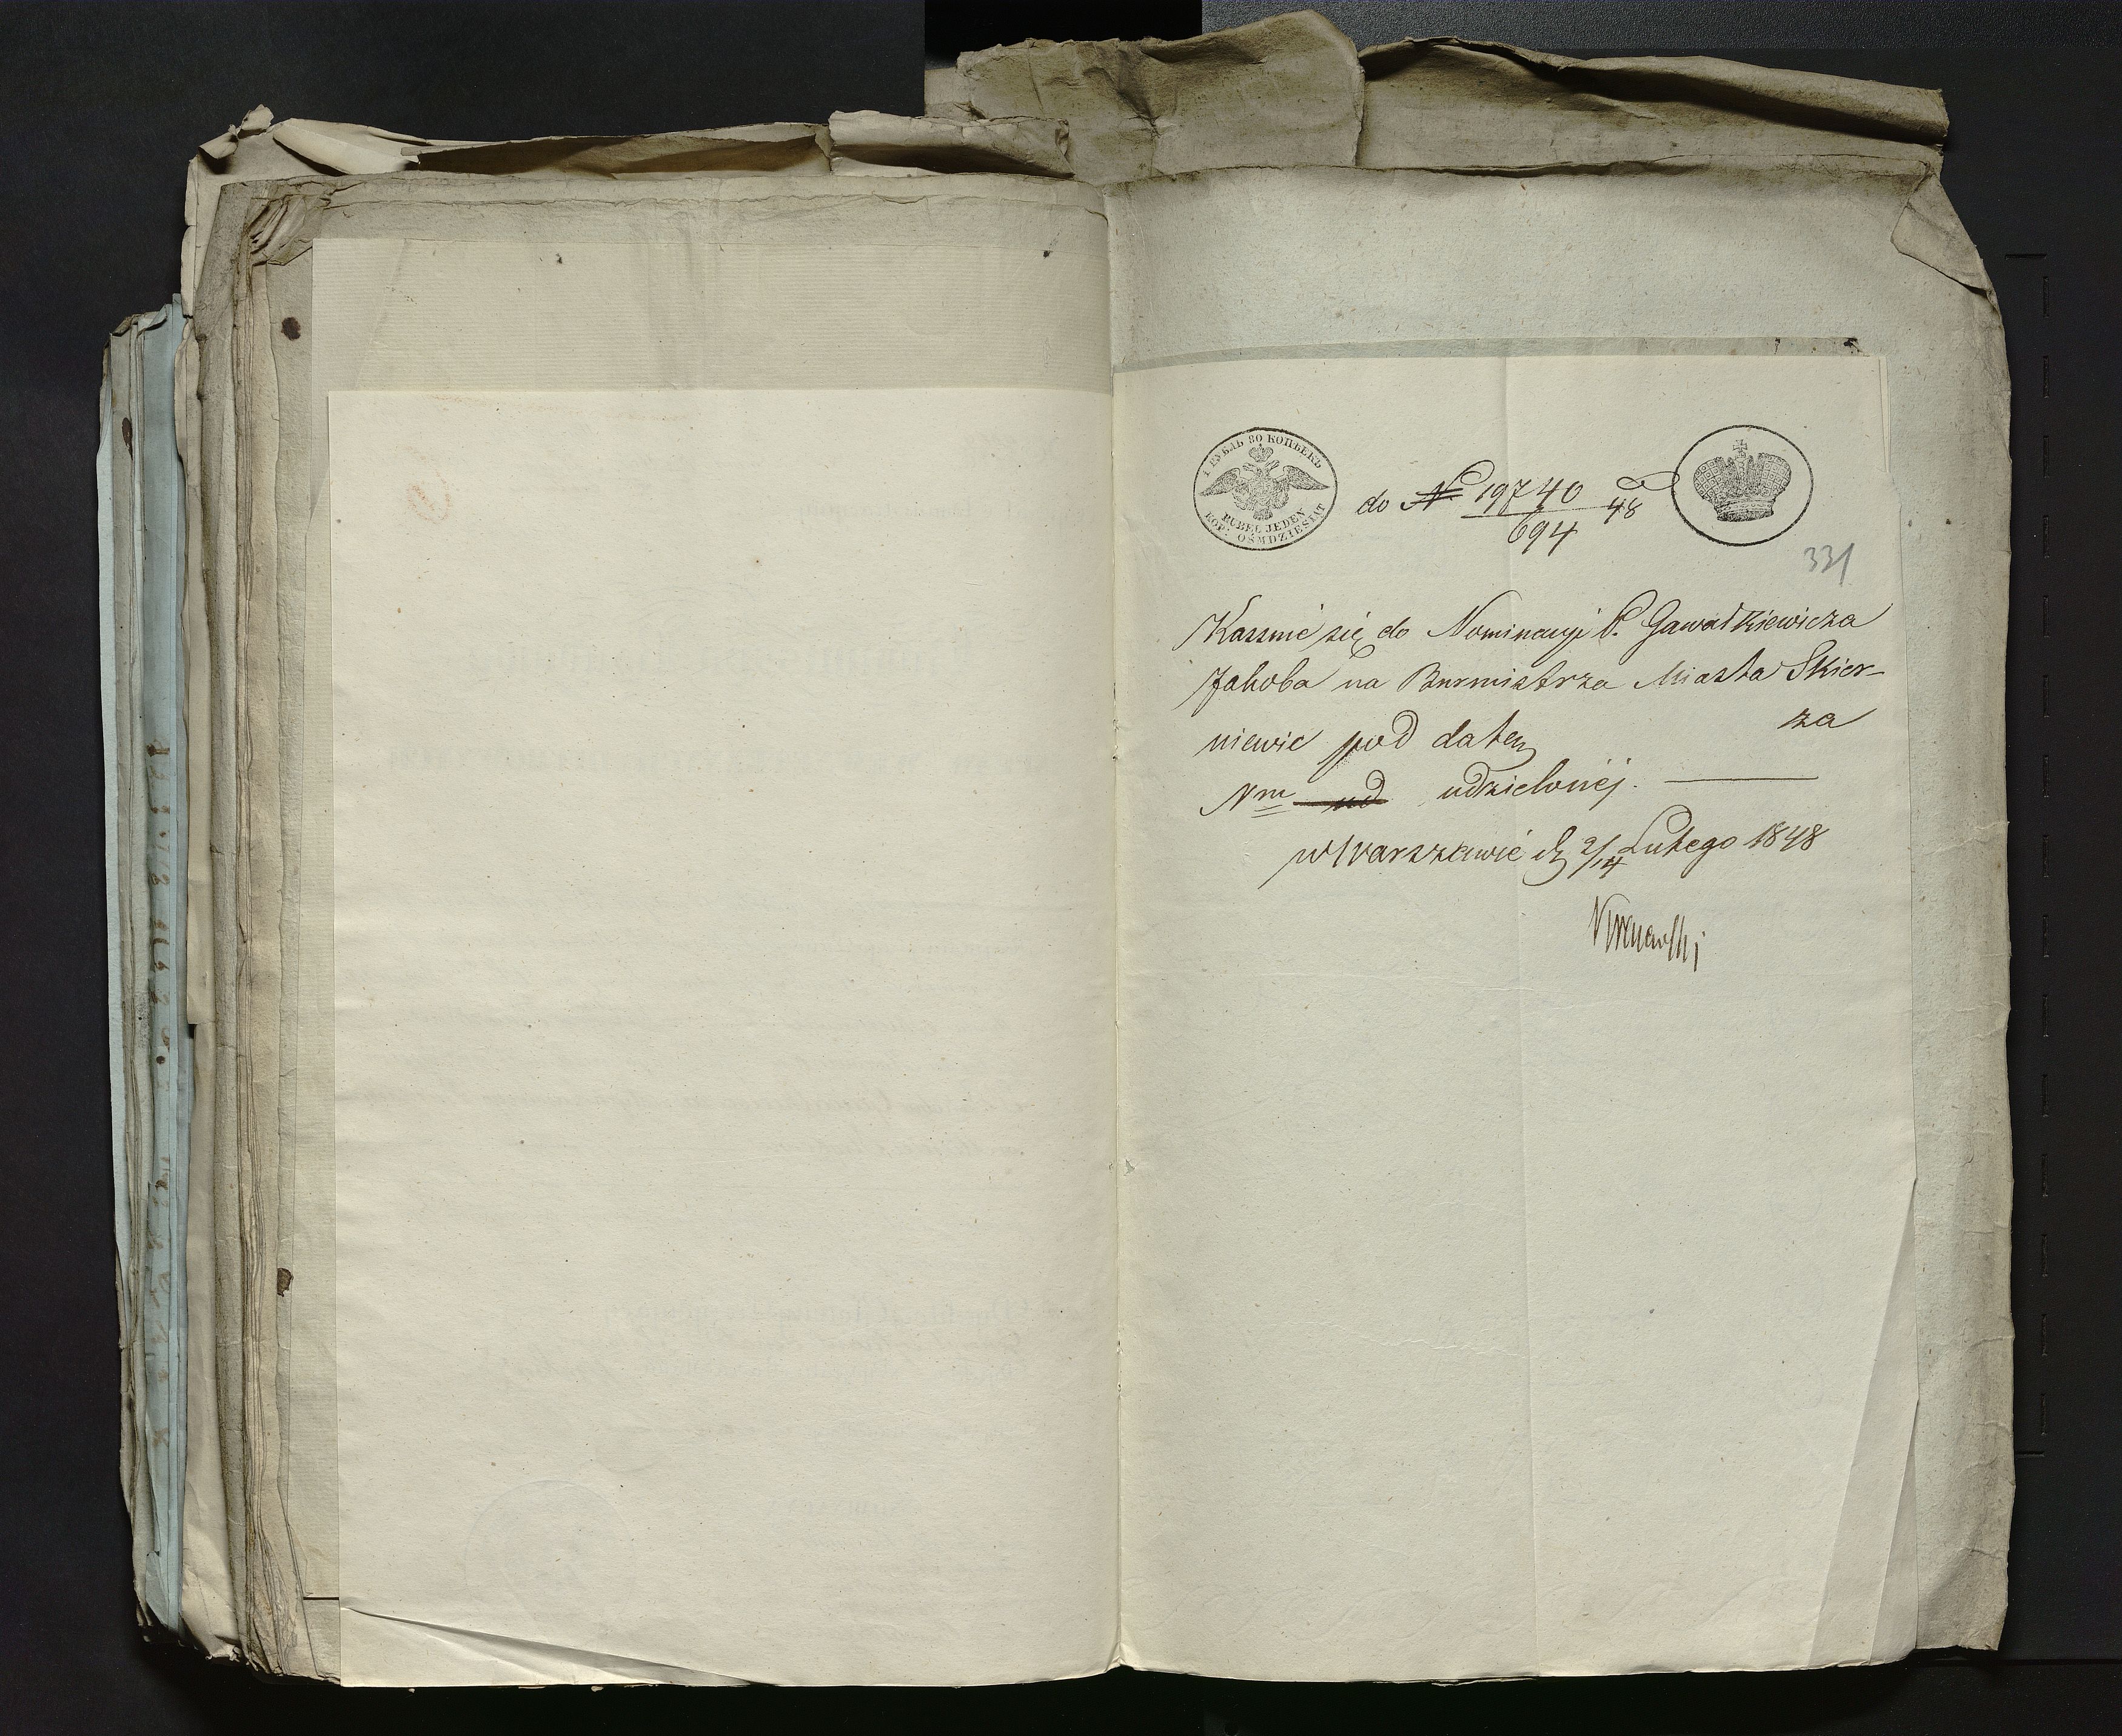 1 РУБЛЬ 80 КОПѢЕКЪ
RUBEL JEDEN
KOP: OŚMDZIESIĄT
do N 19740/694 48
331
Kassuie się do Nominacyi P. Gawatkiewicza
Jakoba na Burmistrza Miasta Skier-
niewic pod datą za
Nrm udzielonéj.
w Warszawie d 2/14 Lutego 1848